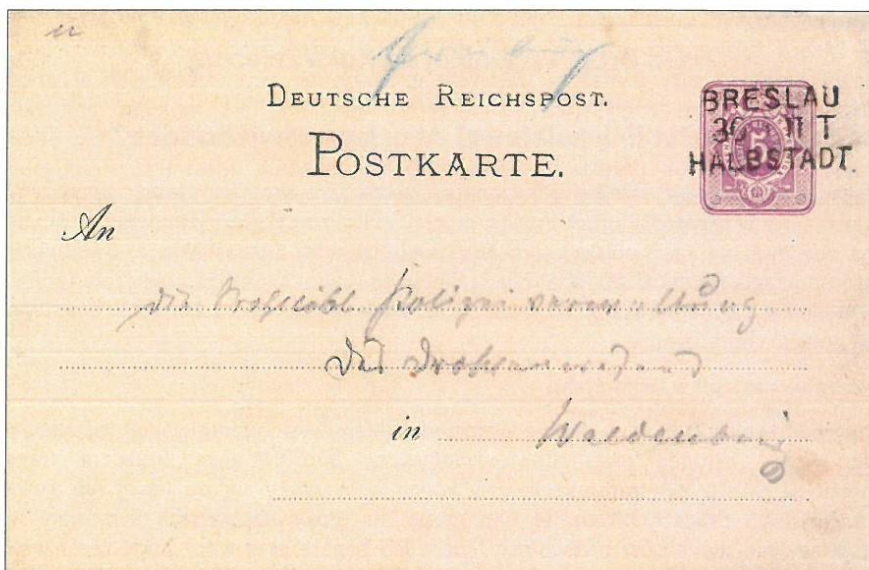 DEUTSCHE REICHSPOST.
POSTKARTE.
BRESLAU
30 11 T
HALBSTADT.
5
An
die Wohllöbl Polizei verwaltung
des Droschkenwesens
in Waldenburg